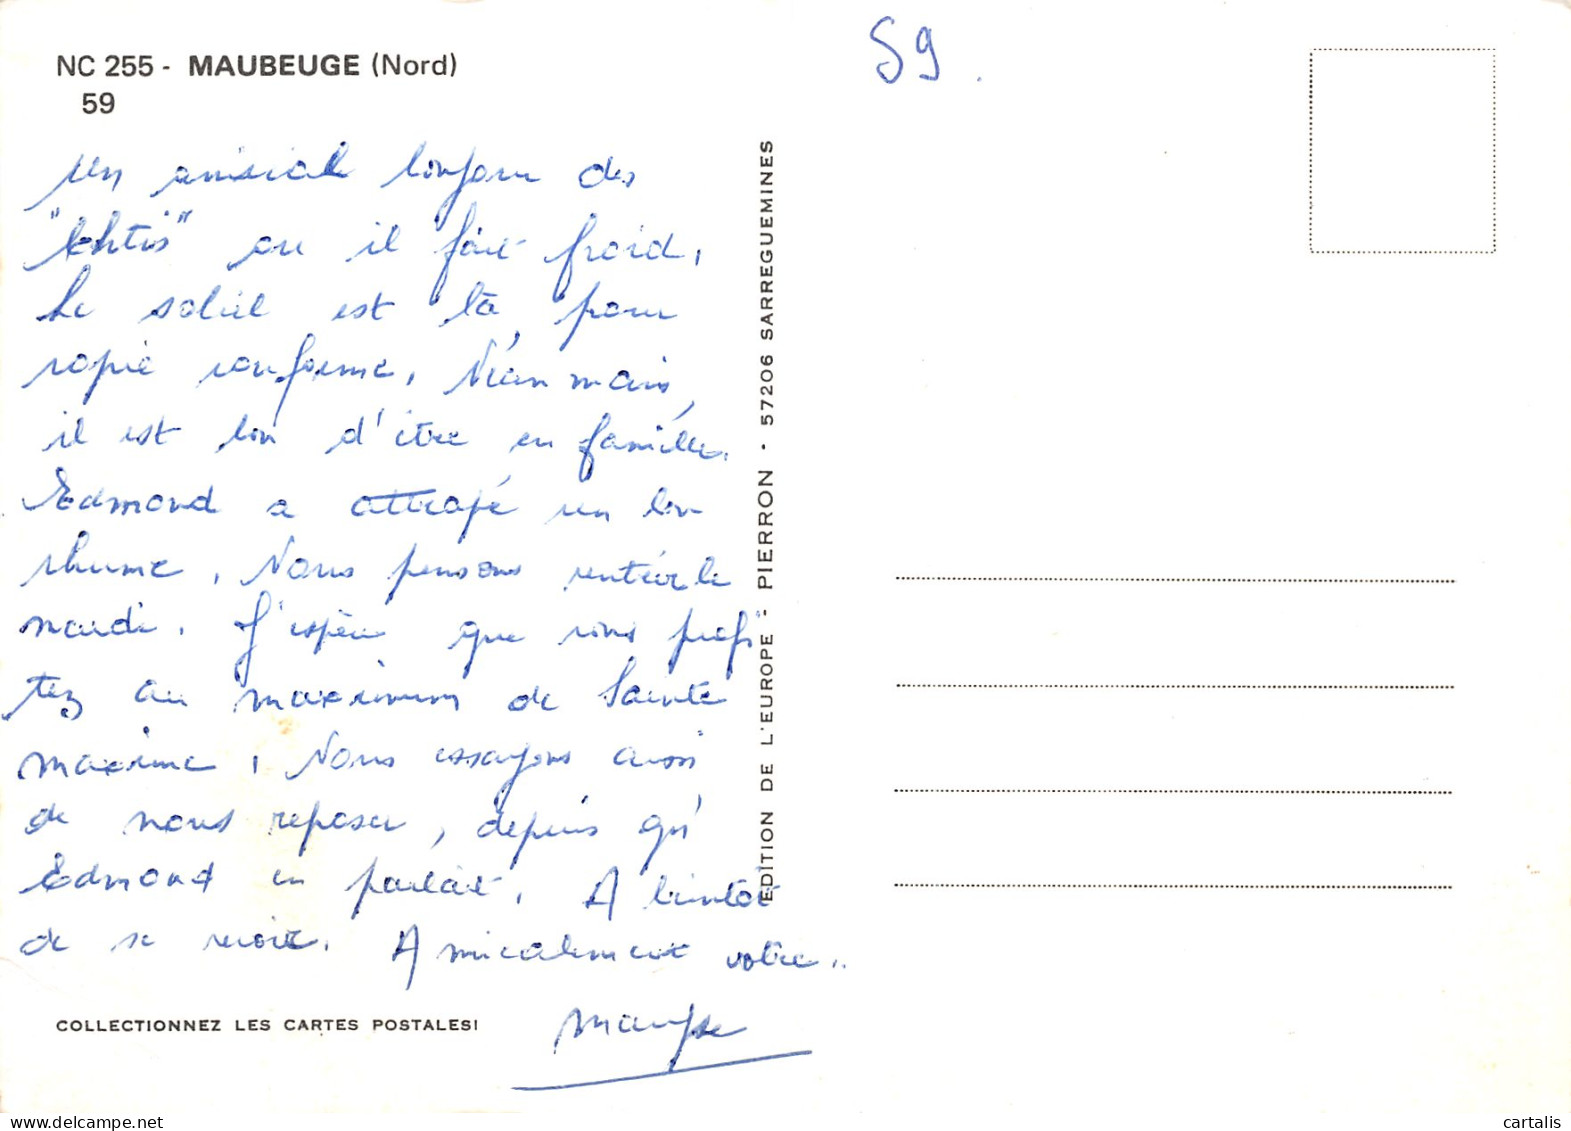 NC 255 - MAUBEUGE (Nord)
59
59
Un amical bonjour des
"Chtis" ou il fait froid,
Le soleil est là pour
copie conforme, Néanmains,
il est bon d'être en famille.
Edmond a attrapé un bon
rhume, Nous pensons rentrer le
mardi. J'espère que vous profi
tez au maximum de Sainte
maxime, Nous essayons aussi
de nous reposer, depuis qu'
Edmond en parlait. A bientôt
de se revoir. Amicalement votre..
COLLECTIONNEZ LES CARTES POSTALES!
EDITION DE L'EUROPE - PIERRON - 57206 SARREGUEMINES
cartalis